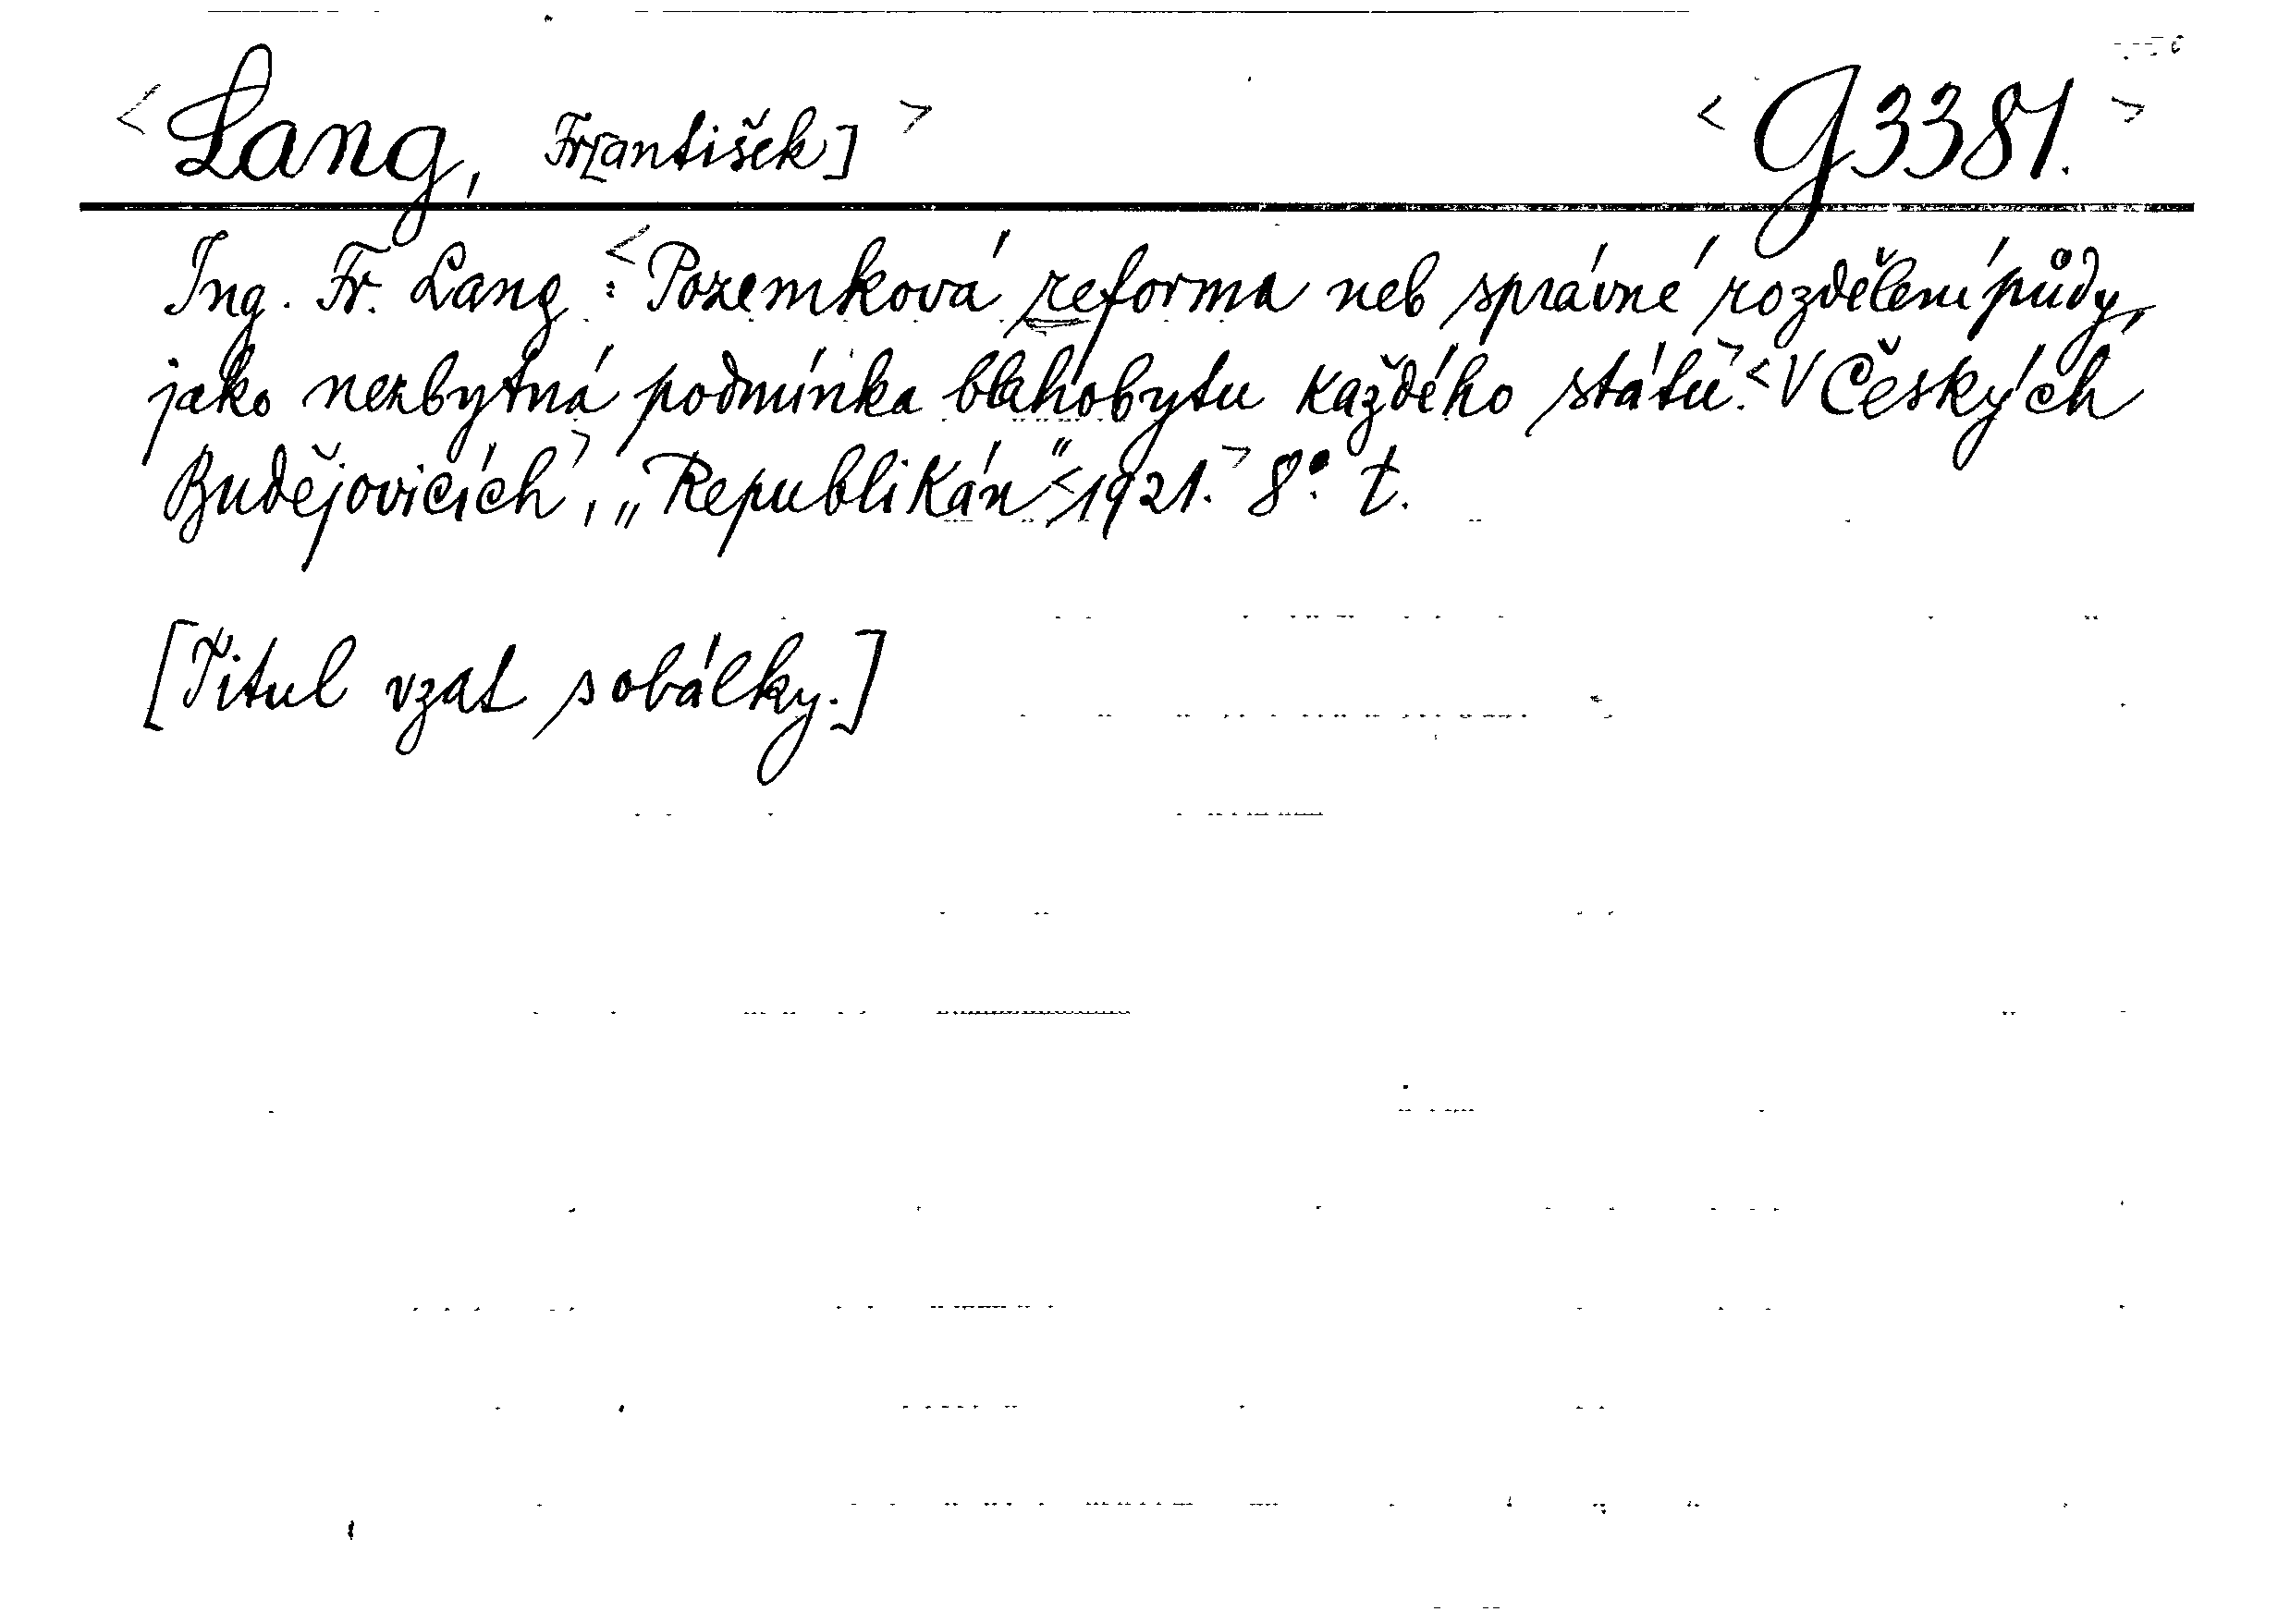 <Lang, Fr[antišek]> <G 3381.>
Ing. Fr. Lang: <Pozemková reforma neb správné rozdělení půdy,
jako nezbytná podmínka blahobytu každého státu.> <V Českých
Budějovicích>, „Republikán“ <1921.> 8°. t.
[Titul vzat s obálky.]